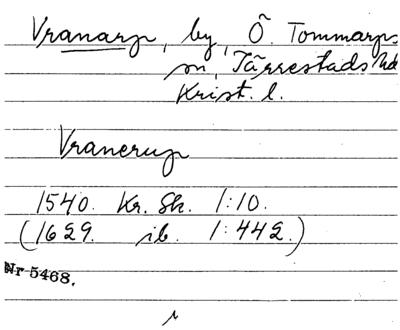 Vranarp, by, Ö. Tommarps
sn, Järrestads hd
Krist. l.
Vranerup
1540. Kr. Sk. 1:10.
(1629. ib. 1:442.)
Nr 5468.